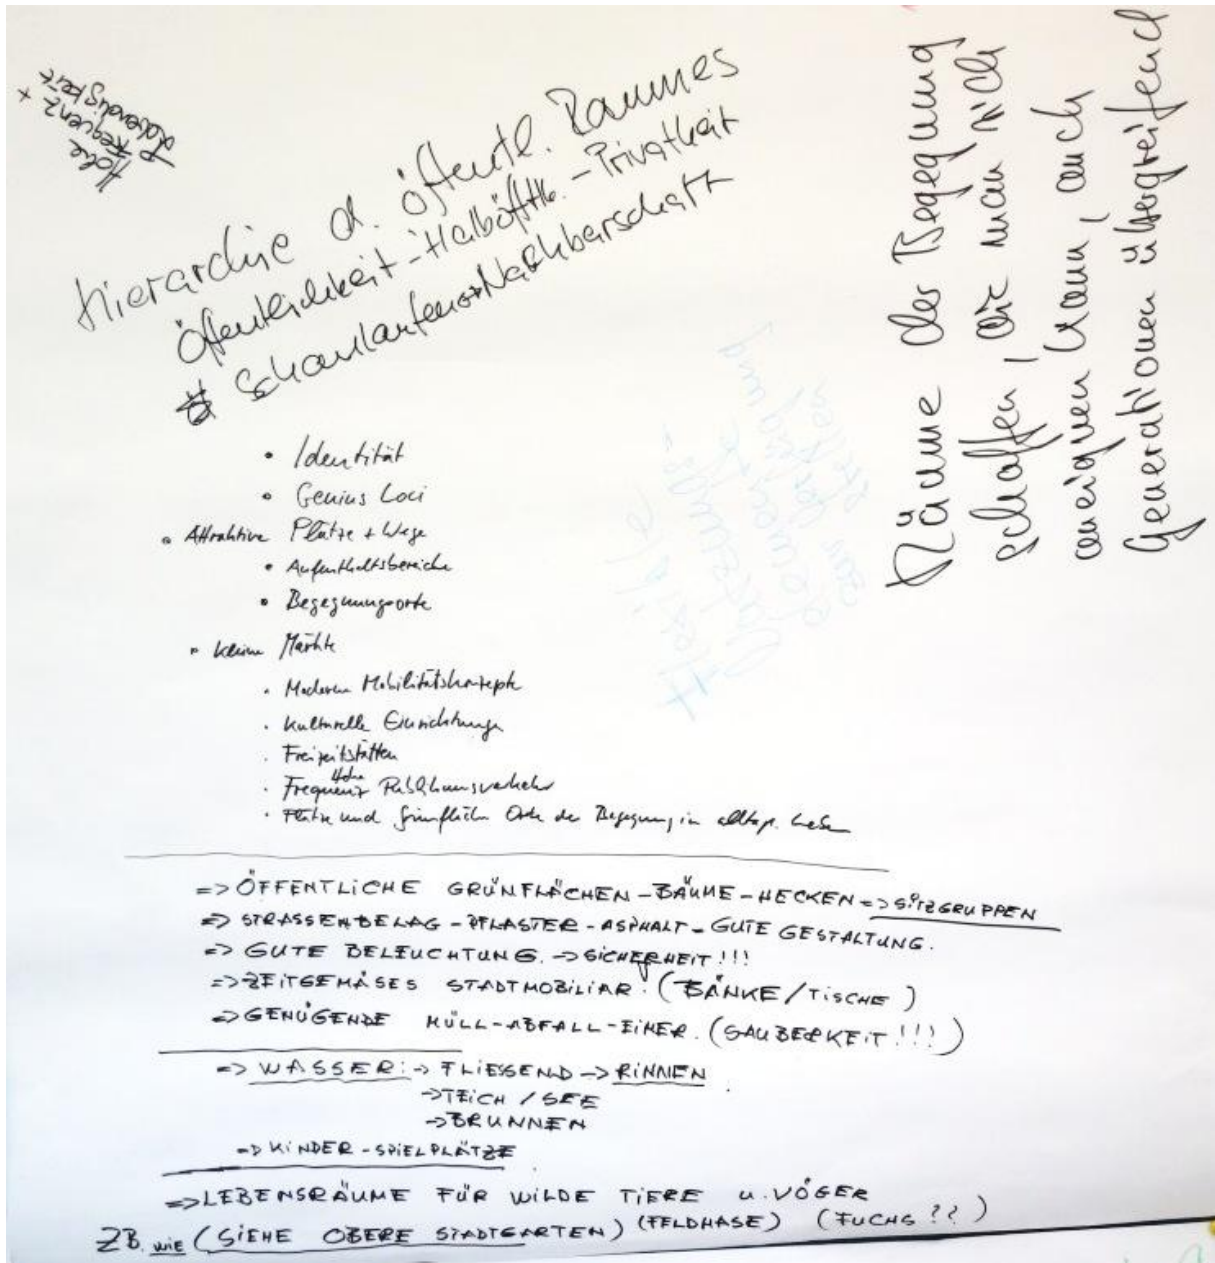 Hohe
Frequenz +
Lebendigkeit
Hierarchie d. öffentl. Raumes
Öffentlichkeit - Halböfftk. - Privatheit
Schanlanfens Nachbarschaft
Räume der Begegnung
schaffen, die man sich
aneignen kann, auch
Generationen übergreifend
• Identität
• Genius Loci
• Attraktive Plätze + Wege
• Aufenthaltsbereiche
• Begegnungsorte
• kleine Märkte
• Moderne Mobilitätskonzepte
• Kulturelle Einrichtunge
• Freizeitstätten
• Hohe Frequenz Publikumsverkehr
• Plätze und Grünfläch Orte der Begegnung in alltägl. Leben
=> ÖFFENTLICHE GRÜNFLÄCHEN - BÄUME - HECKEN => SITZGRUPPEN
=> STRASSENBELAG - PFLASTER - ASPHALT - GUTE GESTALTUNG.
=> GUTE BELEUCHTUNG. -> SICHERHEIT!!!
=> ZEITGEMÄSES STADTMOBILIAR. (BÄNKE/TISCHE)
=> GENÜGENDE MÜLL-ABFALL-EIMER. (SAUBERKEIT!!!)
=> WASSER: -> FLIESSEND -> RINNEN
-> TEICH / SEE
-> BRUNNEN
=> KINDER-SPIELPLÄTZE
=> LEBENSRÄUME FÜR WILDE TIERE u. VÖGER
ZB. WIE (SIEHE OBERE STADTGARTEN) (FELDHASE) (FUCHS??)